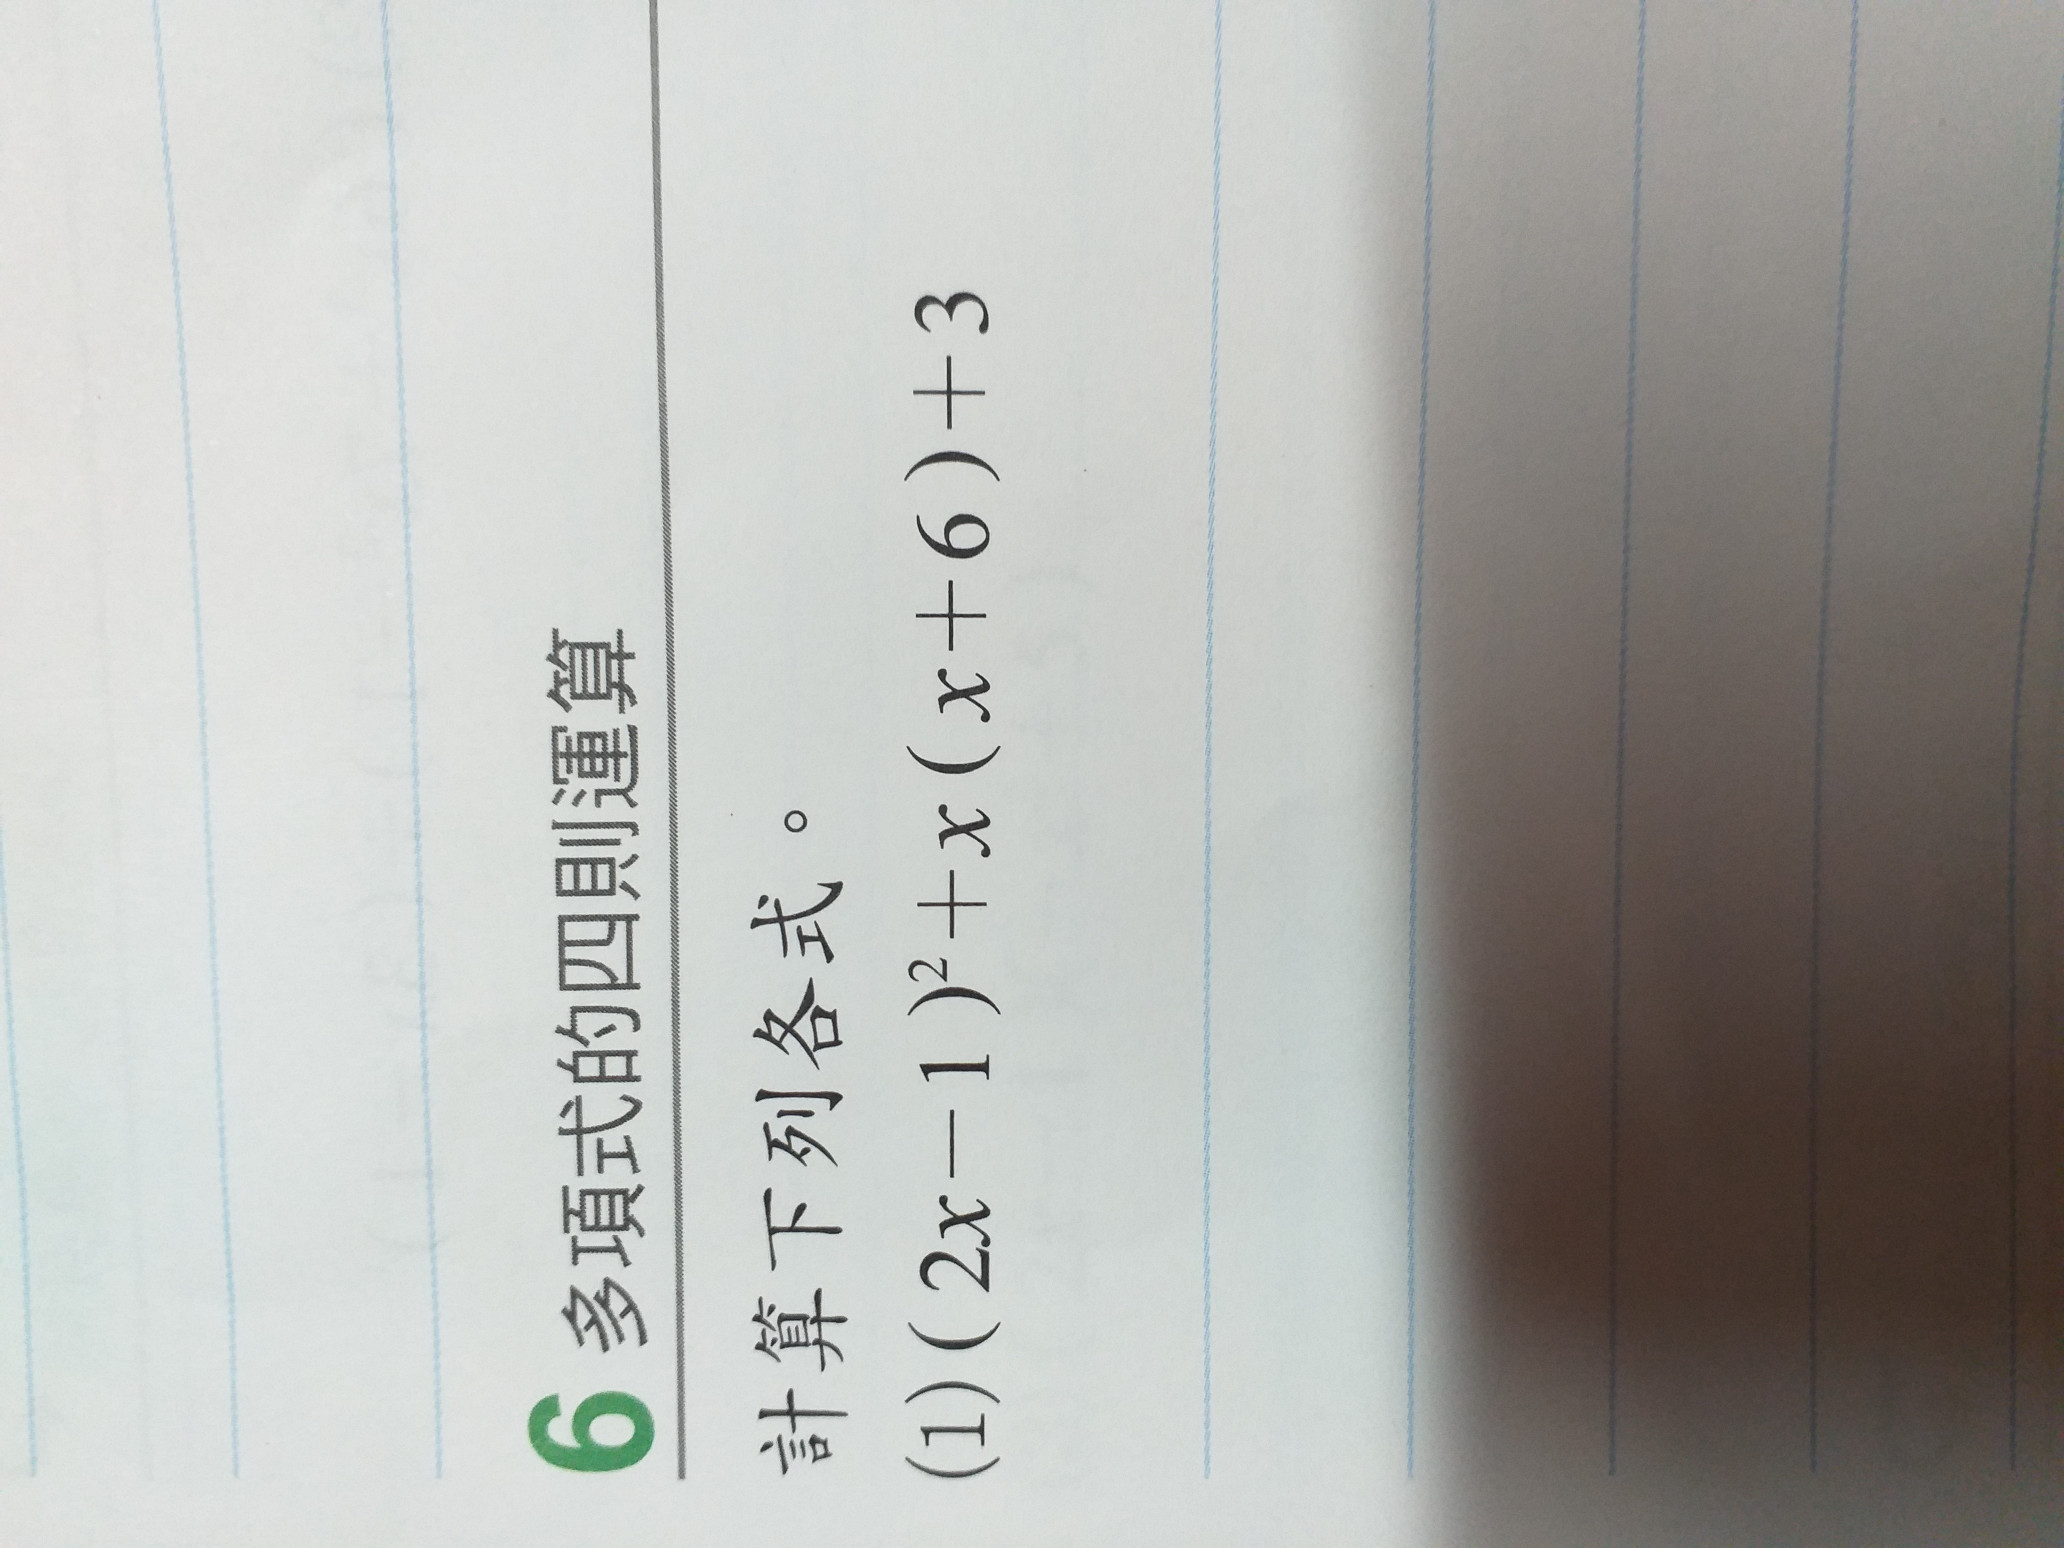 6 多項式的四則運算
計算下列各式。
(1)(2x－1)²＋x(x＋6)＋3